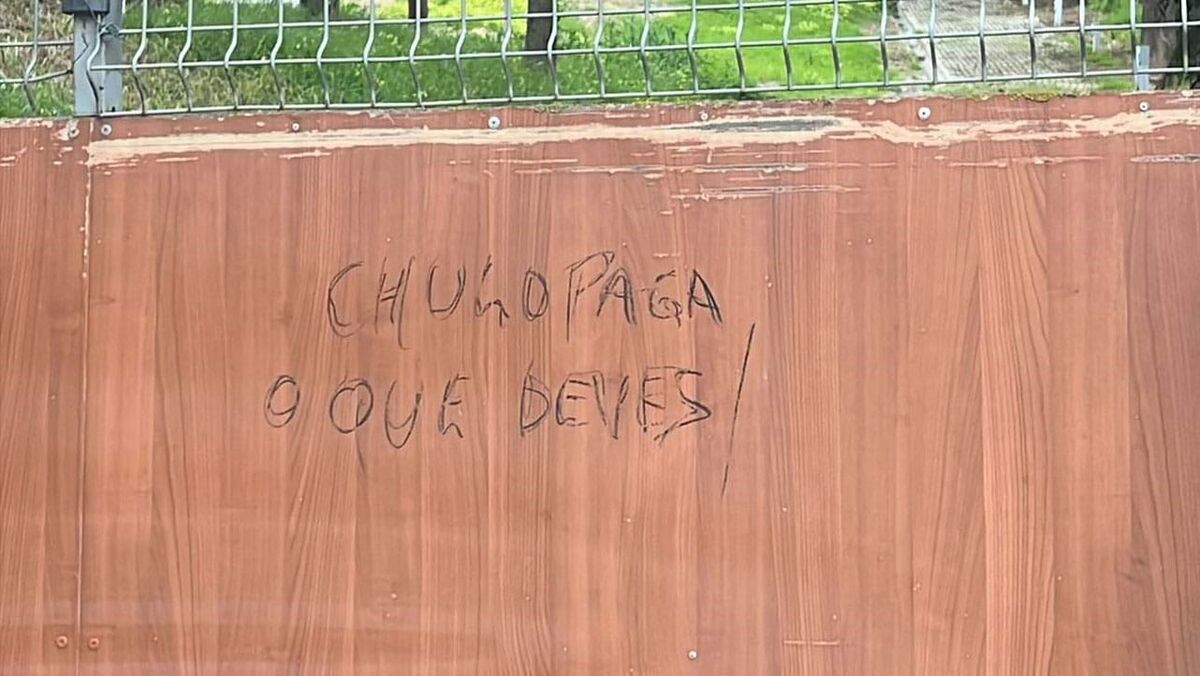 CHULO PAGA
O QUE DEVES!